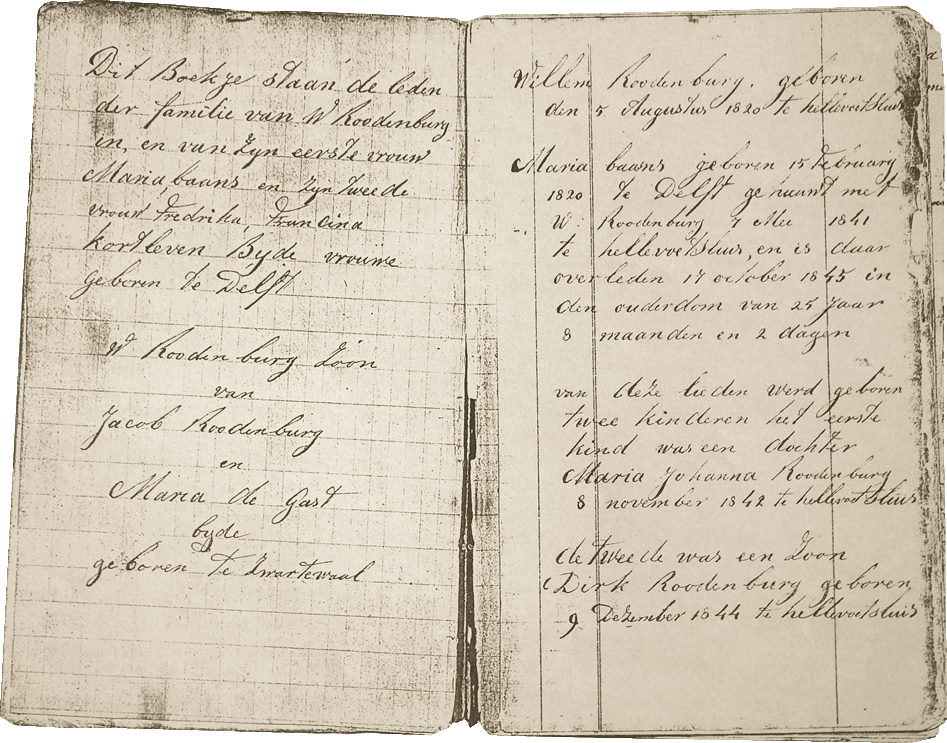 Dit Boekje staan de leden
der familie van W Roodenburg
in, en van zyn eerste vrouw
Maria baans en zyn tweede
vrouw Fredrika, Francina
kortleven Byde vrouwe
geboren te Delft
W Roodenburg Zoon
van
Jacob Roodenburg
en
Maria de Gast
byde
geboren te Zwartewaal
Willem Roodenburg. geboren
den 5 Augustus 1820 te hellevoetsluis
Maria baans geboren 15 February
1820 te Delft getruuwt met
W: Roodenburg 7 Mei 1841
te hellevoetsluis, en is daar
overleden 17 october 1845 in
den ouderdom van 25 Jaar
8 maanden en 2 dagen
van deze lieden werd geboren
twee kinderen het eerste
kind was een dochter
Maria Johanna Roodenburg
8 november 1842 te hellevoetsluis
de tweede was een Zoon
Dirk Roodenburg geboren
9 Dezember 1844 te hellevoetsluis